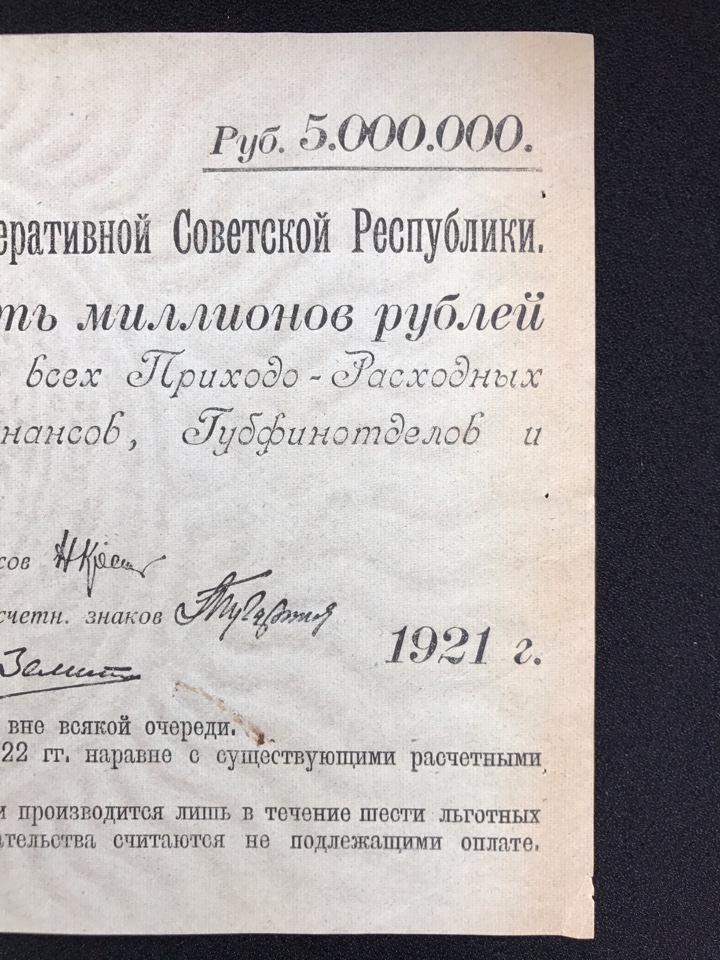 Руб. 5.000.000.
еративной Советской Республики.
ть миллионов рублей
всех Приходо-Расходных
нансов, Губфинотделов и
сов
счетн. знаков
1921 г.
вне всякой очереди.
22 гг. наравне с существующими расчетными
и производится лишь в течение шести льготных
ательства считаются не подлежащими оплате.